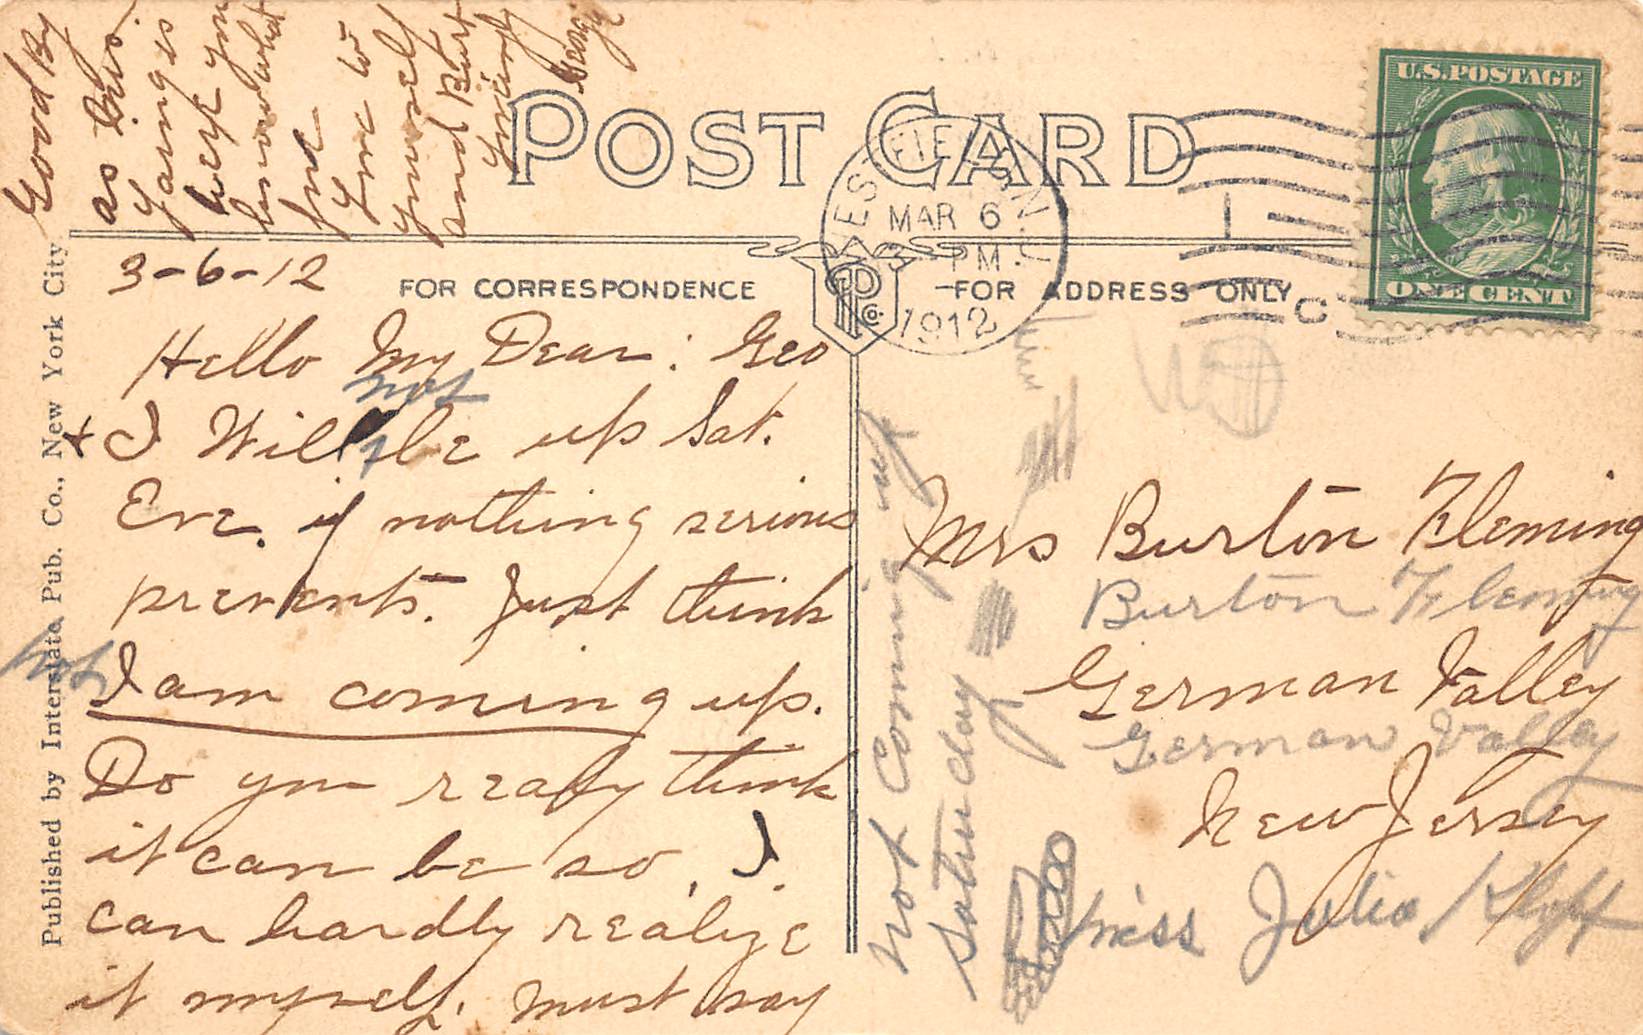 POST CARD
U.S. POSTAGE
ONE CENT
WESTFIELD, N.J.
MAR 6
PM
1912
C
FOR CORRESPONDENCE
FOR ADDRESS ONLY
Published by Interstate Pub. Co., New York City
3-6-12
Hello My Dear: Geo
+ I Will not be up Sat.
Eve. if nothing serious
prevents. Just think
not I am coming up.
Do you really think
it can be so. I
can hardly realize
it myself. Must say
Good By
as this
is
you
fine
Love to
yourself
and Burt
Mrs Burton Fleming
Burton Fleming
German Valley
German Valley
New Jersey
Miss Julia
not Coming up
Saturday